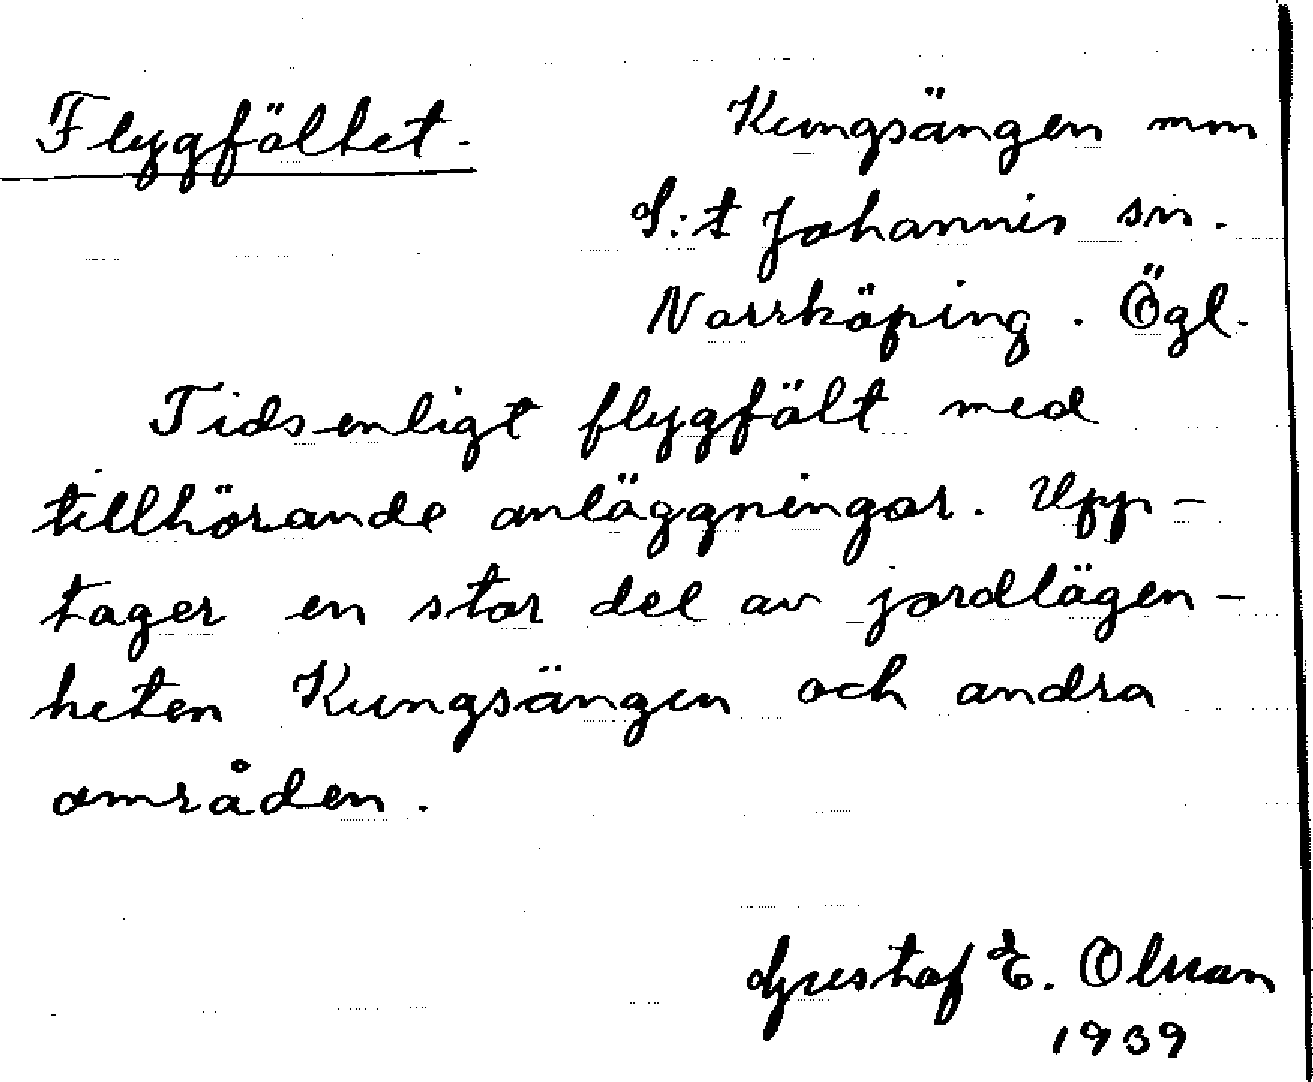 Flygfältet.
Kungsängen mm
S:t Johannis sn.
Norrköping. Ögl.
Tidsenligt flygfält med
tillhörande anläggningar. Upp-
tager en stor del av jordlägen-
heten Kungsängen och andra
områden.
Gustaf E. Olsson
1939